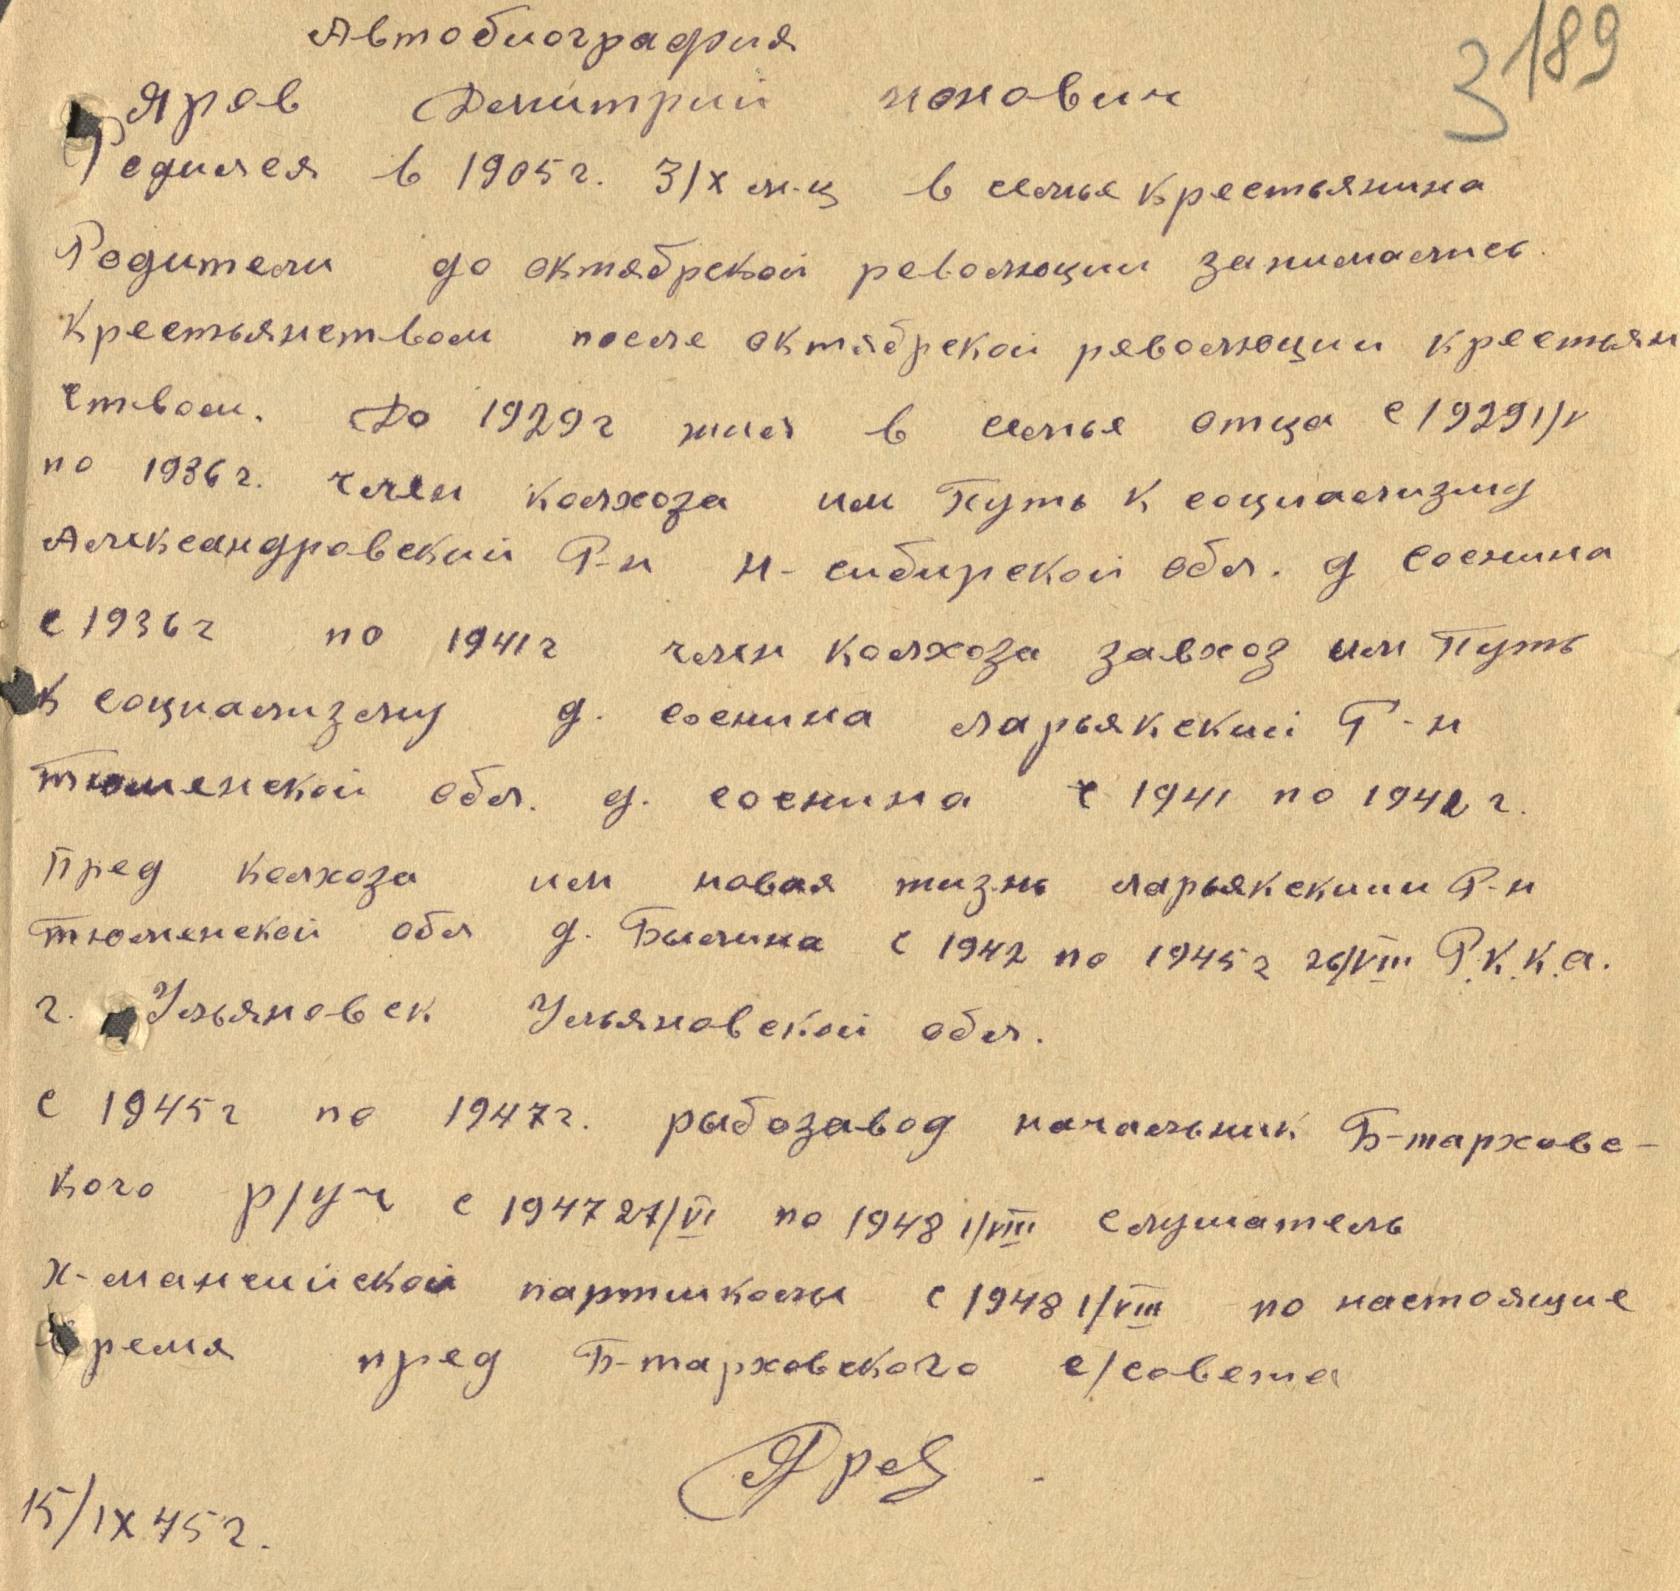 Автобиография
3 189
Яров Дмитрий ионович
Родился в 1905г. 3/X м-ц в семье крестьянина
Родители до октябрской революции занимались
крестьянством после октябрской революции крестьян
ством. До 1929г жил в семье отца с 1929 1/V
по 1936г. член колхоза им Путь к социализму
Александровский Р-н Н-сибирской обл. д соснина
с 1936г по 1941г член колхоза завхоз им Путь
к социализму д. соснина ларьякский Р-н
тюменской обл. д. соснина с 1941 по 1942г.
Пред колхоза им новая жизнь ларьякскии Р-н
тюменской обл д. Былина с 1942 по 1945г 26/VIII Р.К.К.А.
г. Ульяновск Ульяновской обл.
с 1945г по 1947г. рыбозавод начальник Б-тарховс-
кого р/уч с 1947 27/VI по 1948 1/VIII слушатель
х-мансийской партшколы с 1948 1/VIII по настоящие
время пред Б-тарховского с/совета
Яров
15/IX 45г.